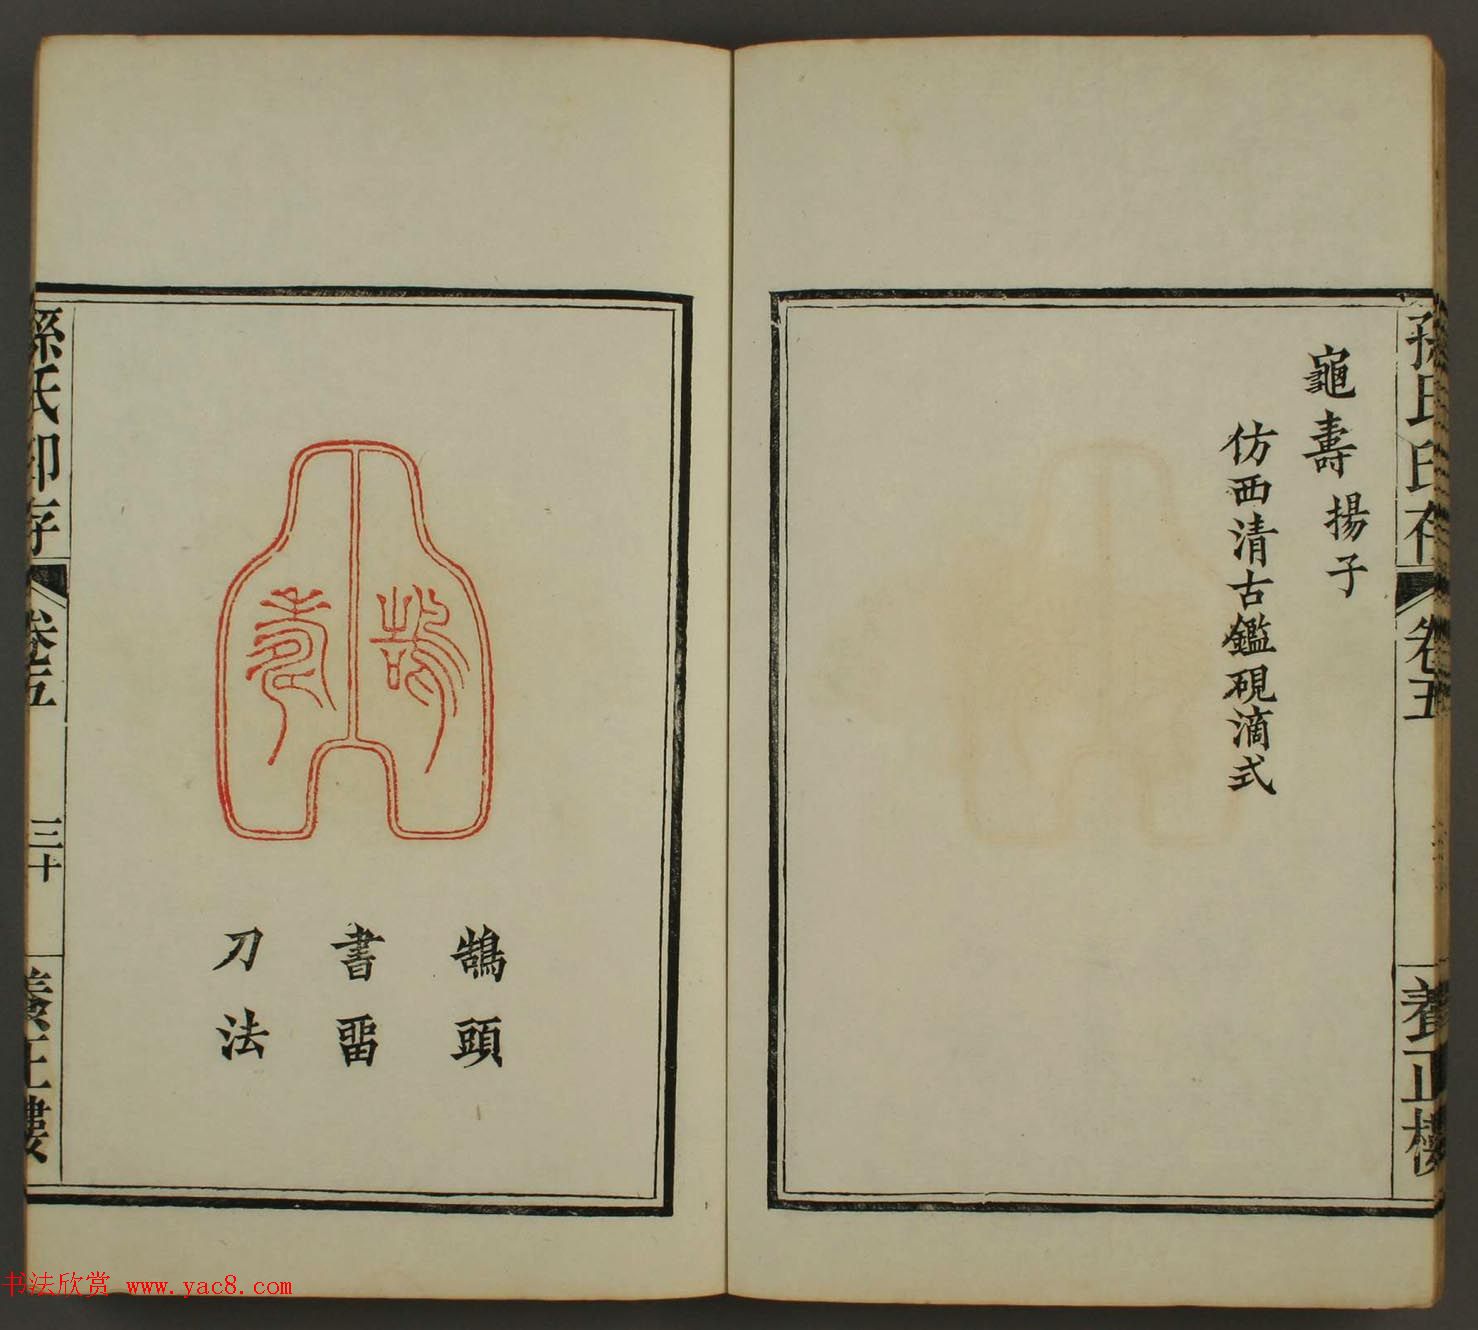 孫氏印存 卷五 養正樓
龜壽 揚子
仿西清古鑑硯滴式
鵠頭
書畱
刀法
孫氏印存 卷五 三十 養正樓
书法欣赏 www.yac8.com